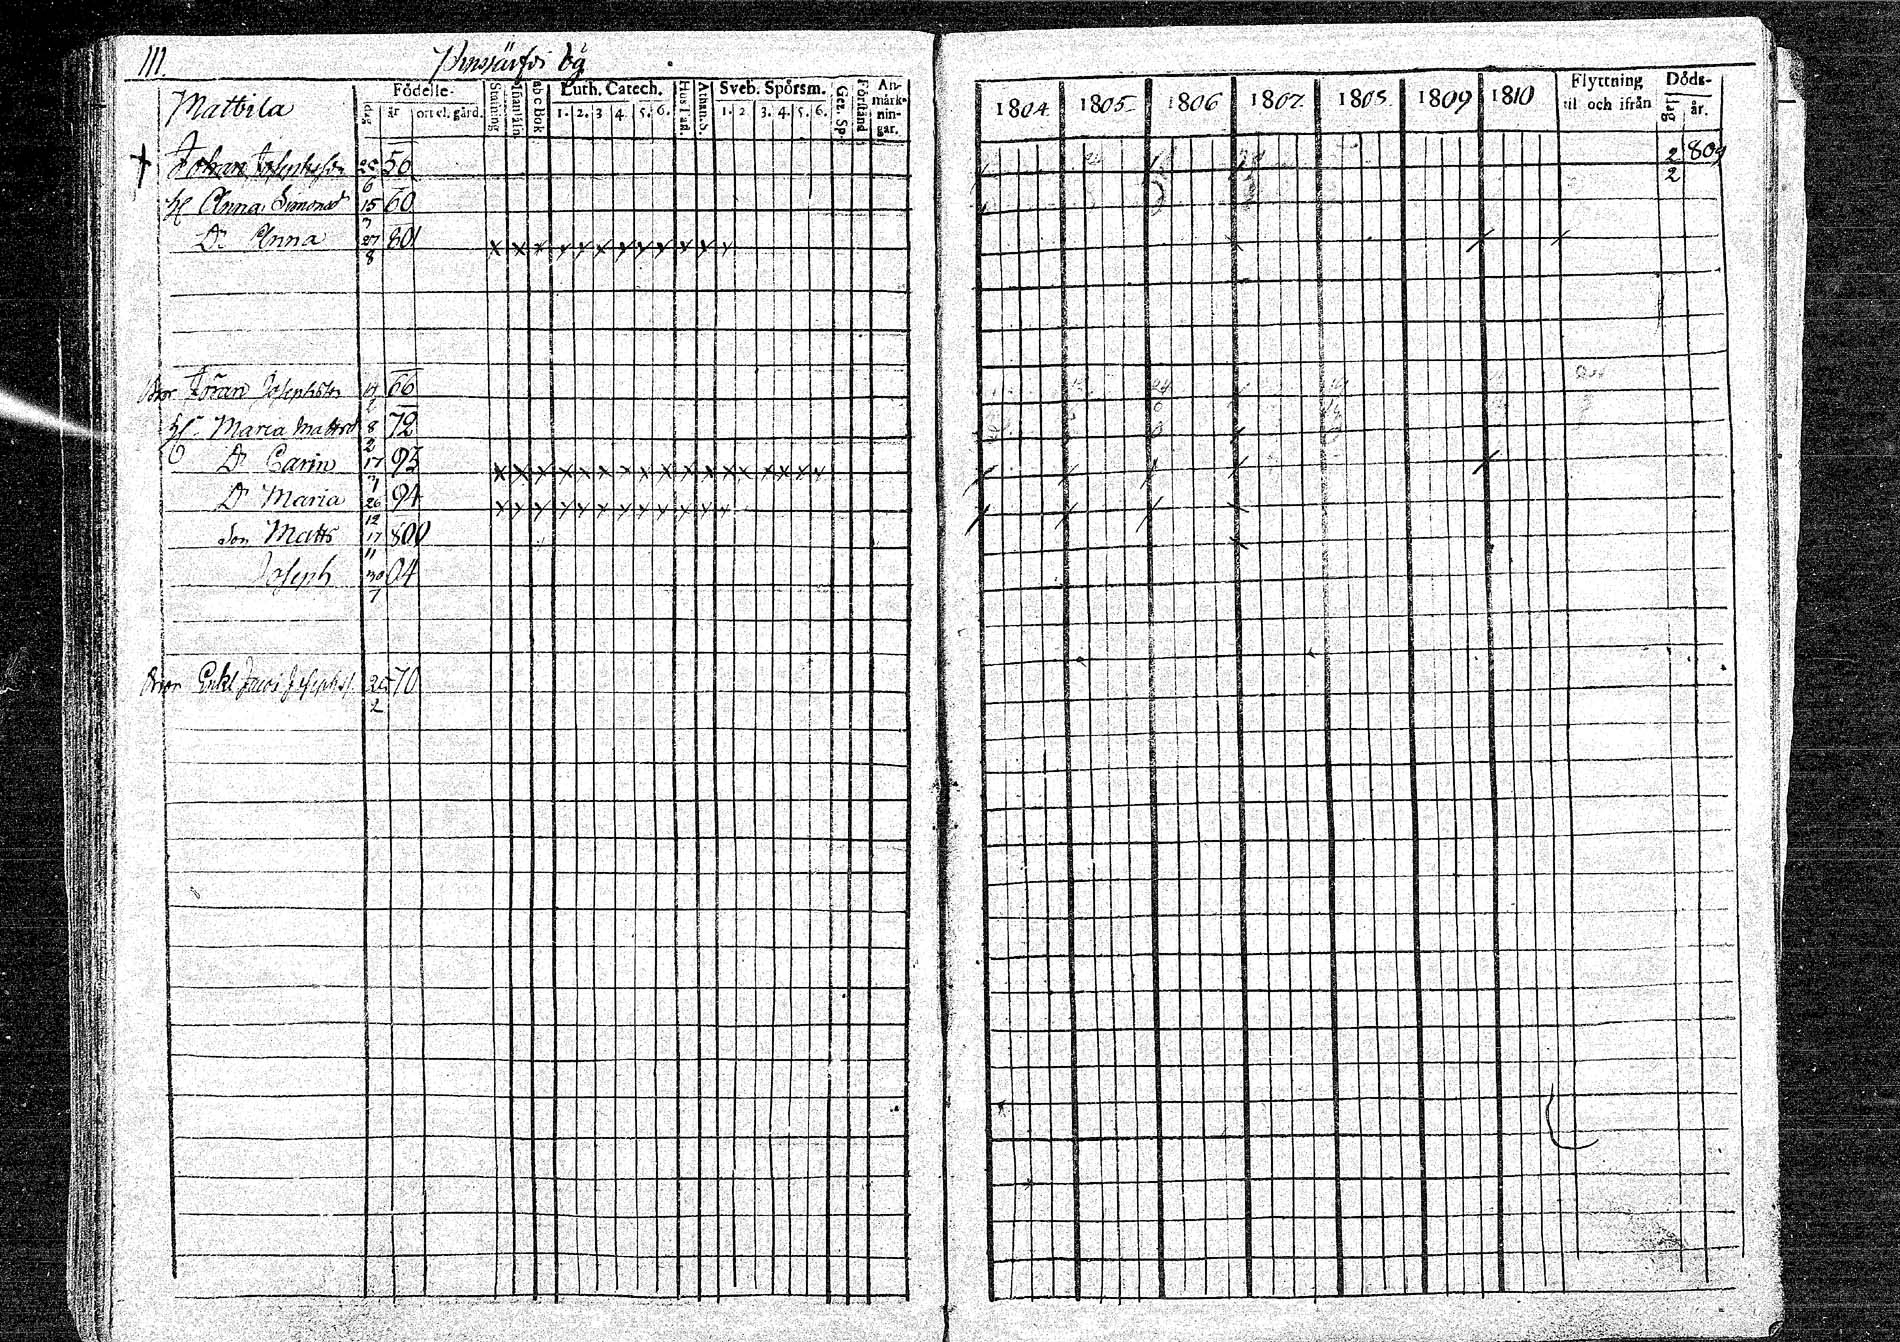 111.
by
Mattila
Födelse-
dag
år
ort el. gård.
Stafning
abc Bok
Luth. Catech.
1. 2. 3 4. 5. 6.
Hus Tafl.
Athan. S.
Sveb. Spörsm.
1. 2 3. 4. 5. 6.
Gez. Sp.
Förstånd
An-
märk-
nin-
gar.
1804. 1805. 1806 1807. 1808. 1809 1810
Flyttning
til och ifrån
Döds-
dag
år.
† Johan Josephsson 25/6 50 2/2 809
H Anna Simonsd 15/7 60
Dr Anna 27/8 801
Bror Jöran Josephsson 66
H. Maria Mattsd 8/2 72
Dr Carin 17 95
Dr Maria 26/12 94
Son Matts 17/11 800
Joseph 30/7 04
Bror Enkl Jacob Josephss. 25/2 70